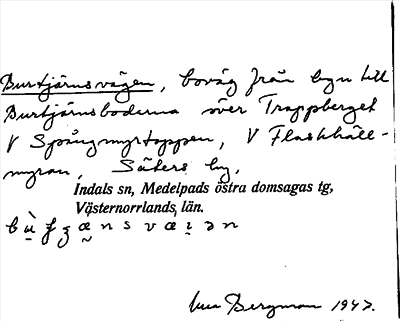 Burtjärnsvägen, boväg från byn till
Burtjärnsbodarna över Trappberget
V Spångmyrtoppen, V Flaskhäll-
myran, Säters by,
Indals sn, Medelpads östra domsagas tg,
Västernorrlands län.
Bergman 1947.